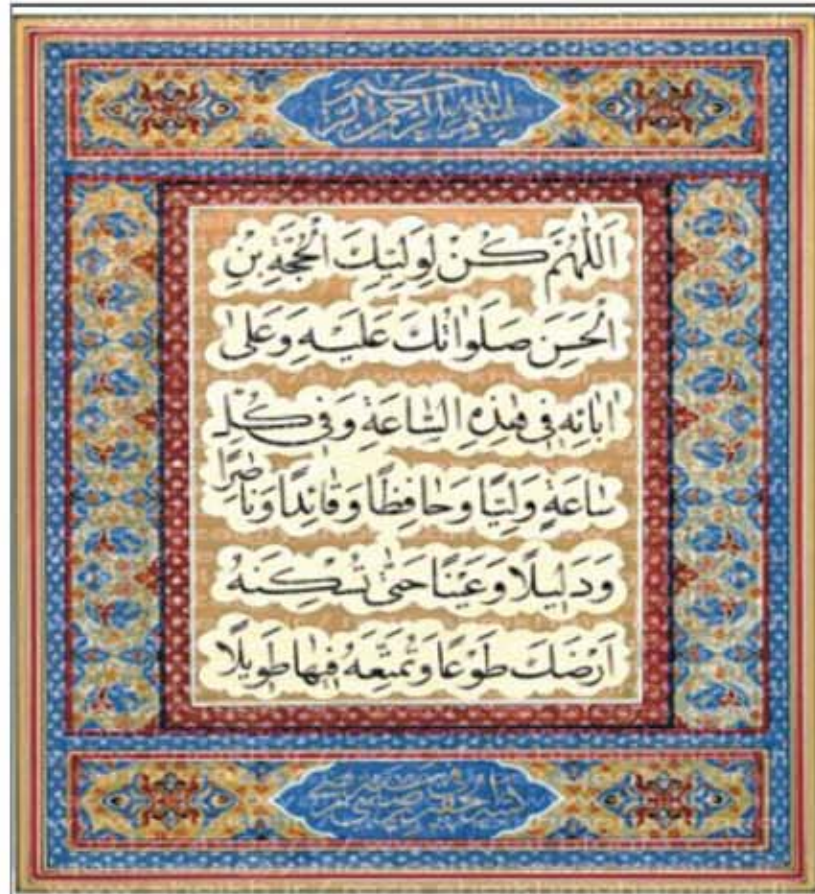 بسم الله الرحمن الرحیم
اَللّٰهُمَّ كُنْ لِوَلِيِّكَ الْحُجَّةِ بْنِ
الْحَسَنِ صَلَوَاتُكَ عَلَيْهِ وَعَلٰى
اٰبَائِهِ فِي هٰذِهِ السَّاعَةِ وَفِي كُلِّ
سَاعَةٍ وَلِيًّا وَحَافِظًا وَقَائِدًا وَنَاصِرًا
وَدَلِيلًا وَعَيْنًا حَتّٰى تُسْكِنَهُ
اَرْضَكَ طَوْعًا وَتُمَتِّعَهُ فِيهَا طَوِيلًا